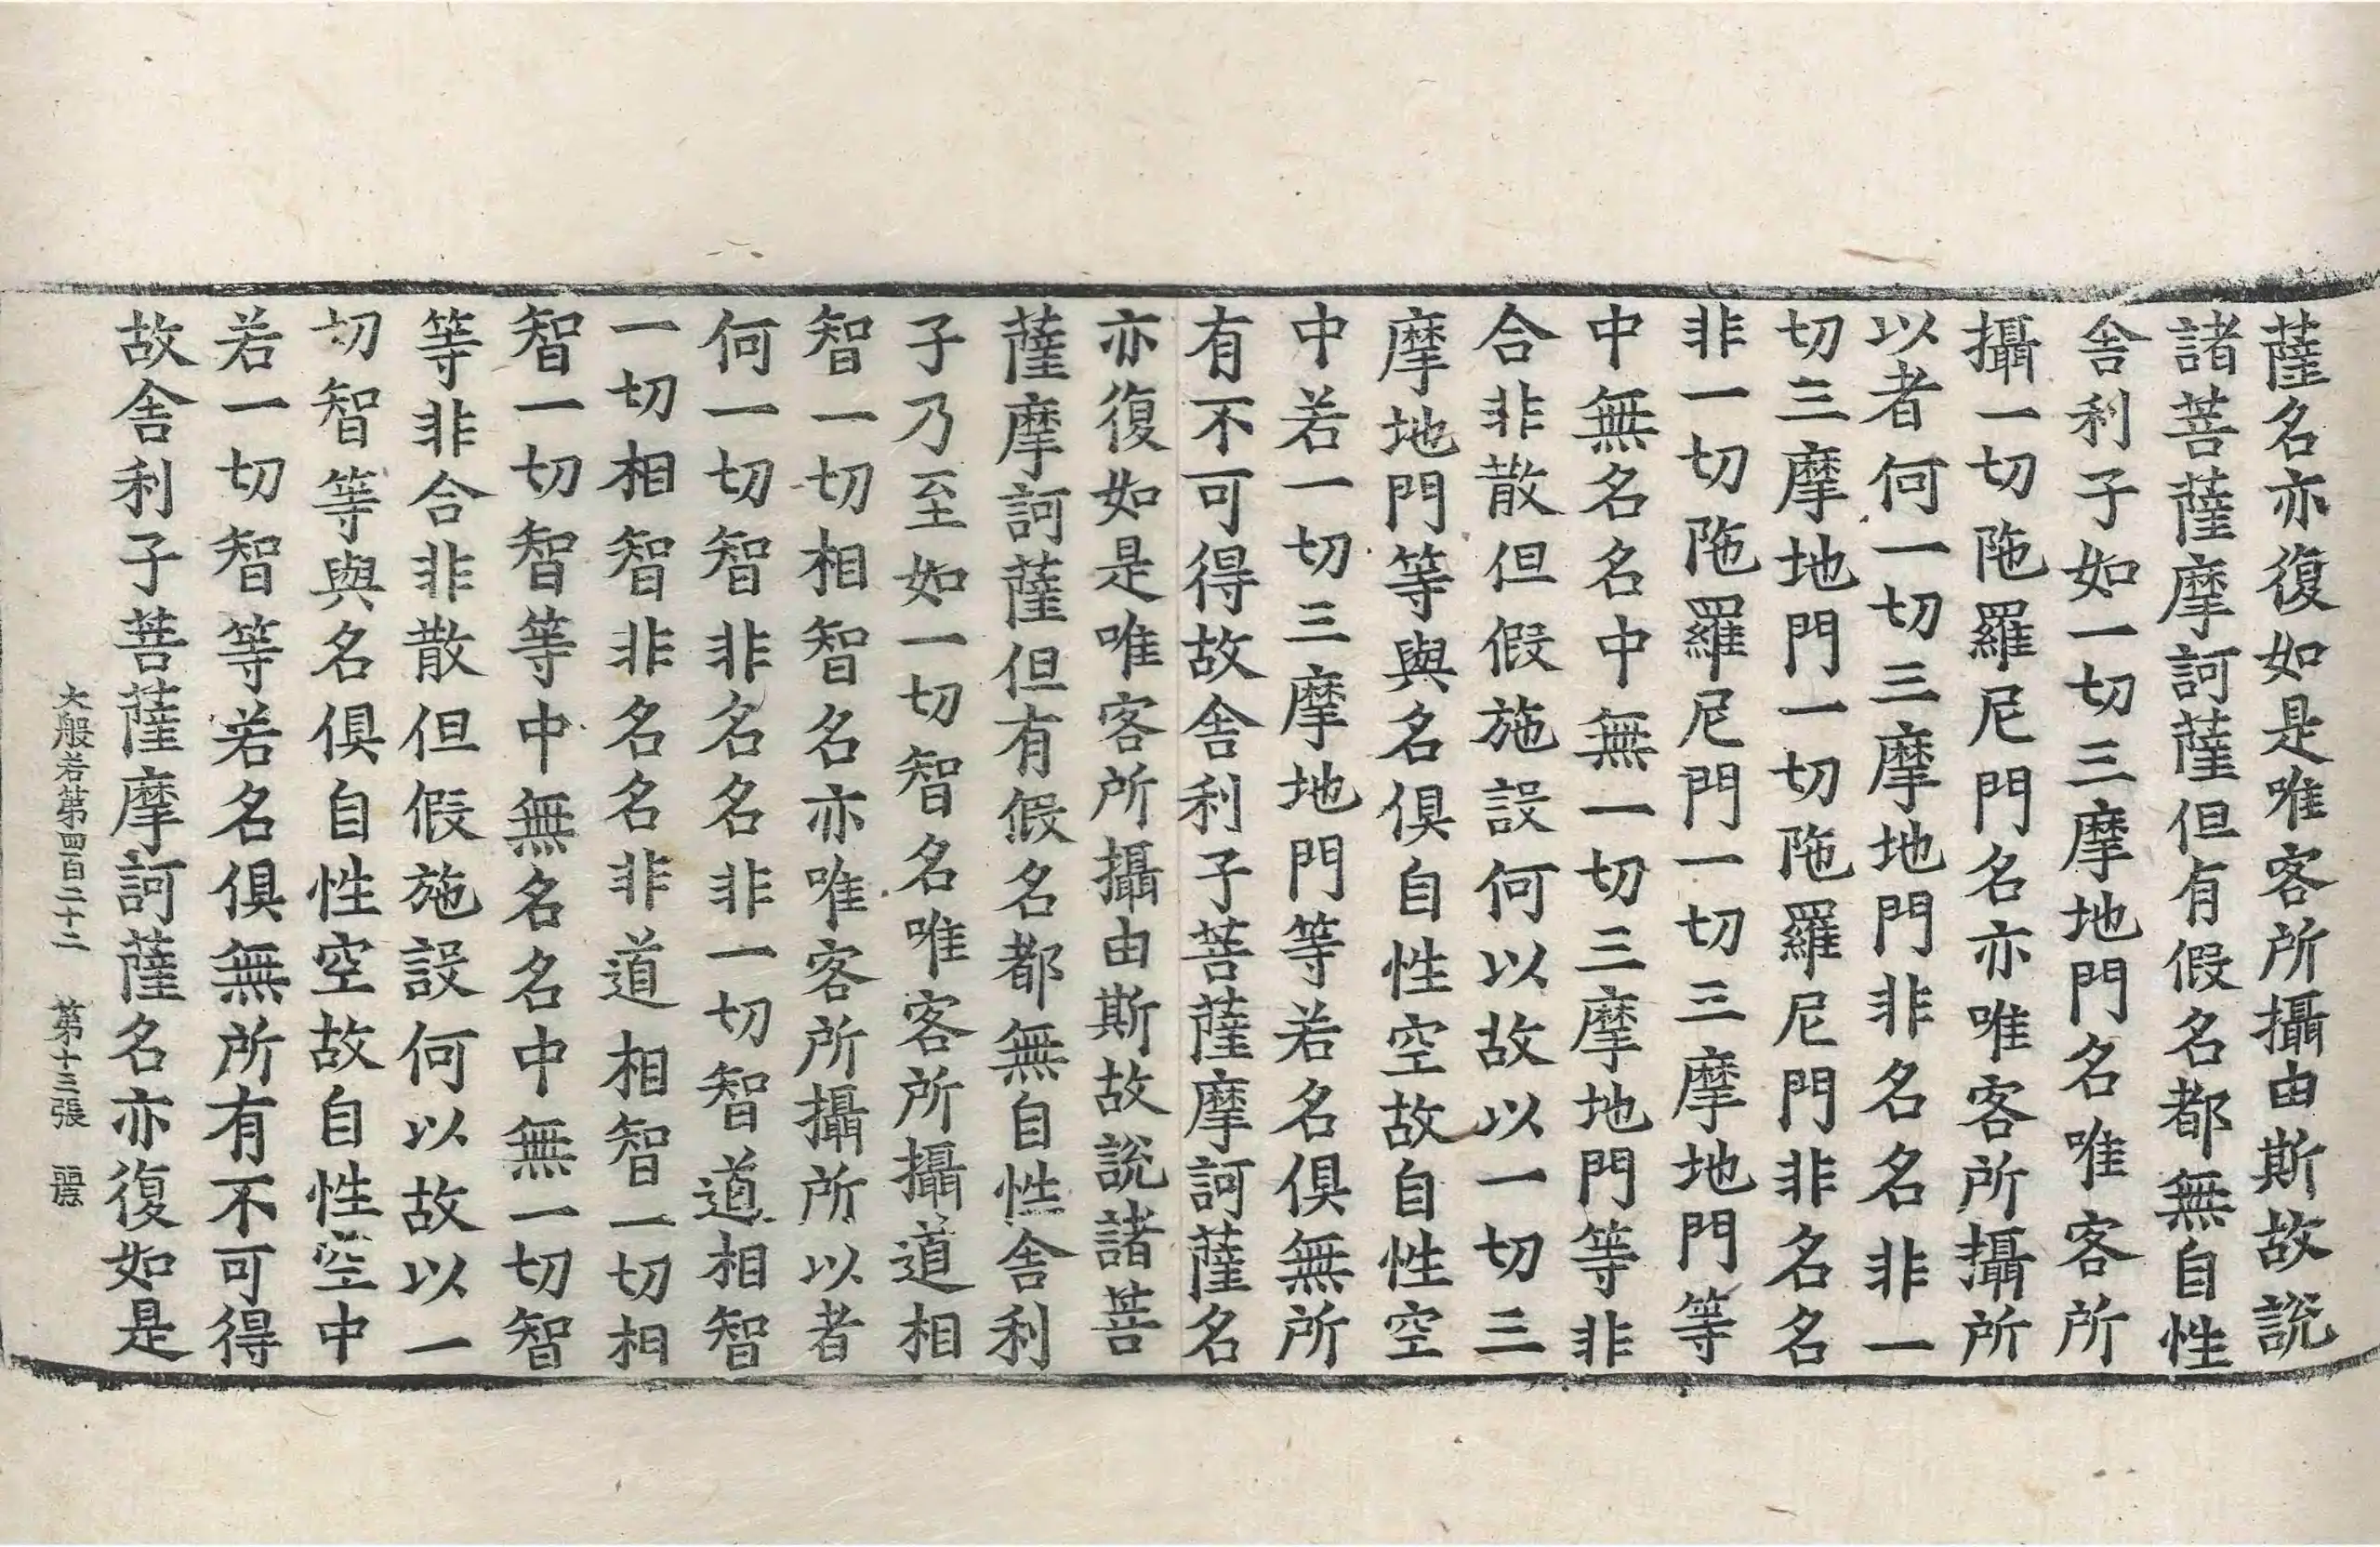 薩名亦復如是唯客所攝由斯故說
諸菩薩摩訶薩但有假名都無自性
舍利子如一切三摩地門名唯客所
攝一切陁羅尼門名亦唯客所攝所
以者何一切三摩地門非名名非一
切三摩地門一切陁羅尼門非名名
非一切陁羅尼門一切三摩地門等
中無名名中無一切三摩地門等非
合非散但假施設何以故以一切三
摩地門等與名俱自性空故自性空
中若一切三摩地門等若名俱無所
有不可得故舍利子菩薩摩訶薩名
亦復如是唯客所攝由斯故說諸菩
薩摩訶薩但有假名都無自性舍利
子乃至如一切智名唯客所攝道相
智一切相智名亦唯客所攝所以者
何一切智非名名非一切智道相智
一切相智非名名非道相智一切相
智一切智等中無名名中無一切智
等非合非散但假施設何以故以一
切智等與名俱自性空故自性空中
若一切智等若名俱無所有不可得
故舍利子菩薩摩訶薩名亦復如是
大般若第四百二十二 第十三張 麗